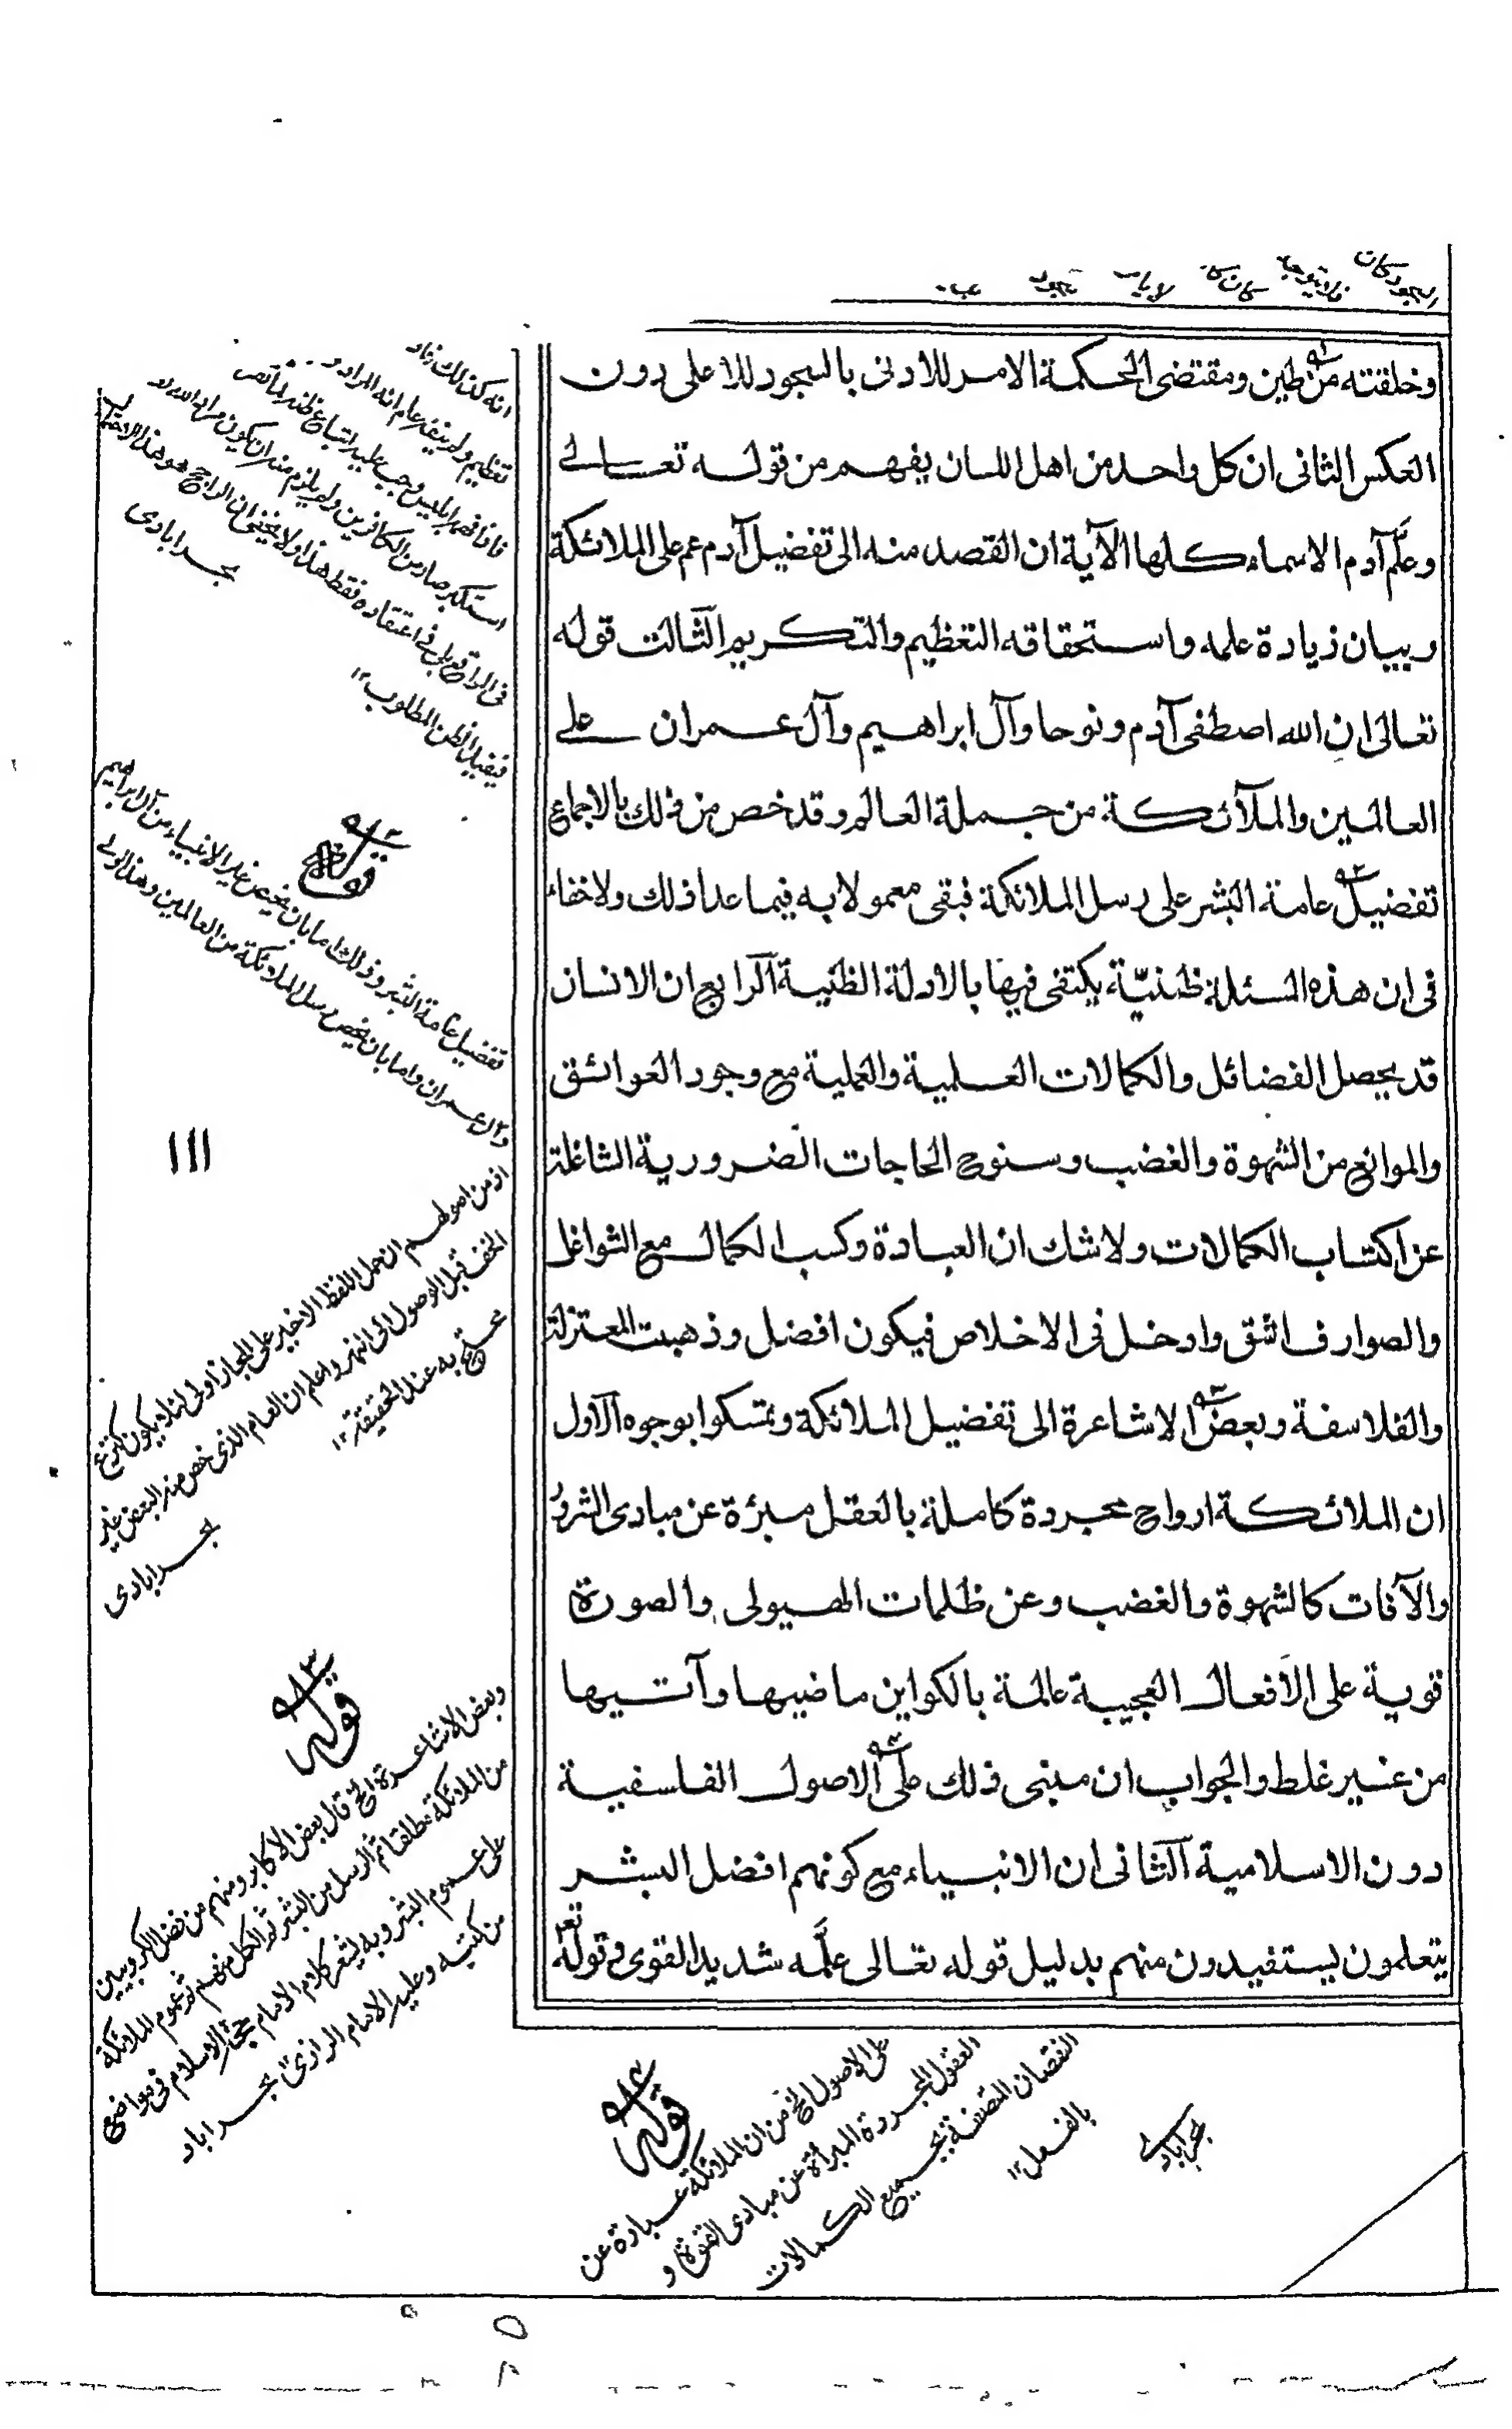 وخلقته من طين ومقتضى الحكمة الامر للادنى بالسجود للاعلى دون
العكس الثانى ان كل واحد من اهل اللسان يفهم من قوله تعالى
وعلّم آدم الاسماء كلها الآية ان القصد منه الى تفضيل آدم عم على الملائكة
وبيان زيادة علمه واستحقاقه التعظيم والتكريم الثالث قوله
تعالى ان الله اصطفى آدم ونوحا وآل ابراهيم وآل عمران على
العالمين والملآئكة من جملة العالم وقد خص من ذلك بالاجماع
تفضيل عامة البشر على رسل الملائكة فبقى معمولا به فيما عدا ذلك ولا خفاء
فى ان هذه المسئلة ظنيّة يكتفى فيها بالادلة الظنية الرابع ان الانسان
قد يحصل الفضائل والكمالات العلمية والعملية مع وجود العوائق
والموانع من الشهوة والغضب وسنوح الحاجات الضرورية الشاغلة
عن اكتساب الكمالات ولا شك ان العبادة وكسب الكمال مع الشواغل
والصوارف اشق وادخل فى الاخلاص فيكون افضل وذهبت المعتزلة
والفلاسفة وبعض الاشاعرة الى تفضيل الملائكة وتمسكوا بوجوه الاول
ان الملائكة ارواح مجردة كاملة بالعقل مبرئة عن مبادى الشرور
والآفات كالشهوة والغضب وعن ظلمات الهيولى والصورة
قوية على الافعال العجيبة عالمة بالكواين ماضيها وآتيها
من غير غلط والجواب ان مبنى ذلك على الاصول الفلسفية
دون الاسلامية الثانى ان الانبياء مع كونهم افضل البشر
يتعلمون يستفيدون منهم بدليل قوله تعالى علّمه شديد القوى وقوله تعر
فى الواقع بل فى اعتقاده فقط هذا ولا يخفى ان الراجح هو هذا الاحتمال
فيفيد الظن المطلوب ١٢
بحرابادى
٩٢ قوله
تفضيل عامة البشر وذلك اما بان يخص غير الانبياء من آل ابراهيم
وآل عمران واما بان يخص رسل الملائكة من العالمين وهذا اولى
١١١
اذ من اصولهم ان حمل اللفظ الاخير على المجاز اولى لئلا يكون كنزع
الخف قبل الوصول الى النهر واعلم ان العام الذى خص منه البعض غير
بحرابادى
٩٣ قوله
وبعض الاشاعرة الخ قال بعض الاكابر ومنهم من فضل الكروبيين
من الملائكة مطلقا ثم الرسل من البشر ثم الكمل منهم ثم عموم الملائكة
على عموم البشر وبه يشعر كلام الامام حجة الاسلام فى مواضع
من كتبه وعليه الامام الرازى ١٢ بحراباد
٩٤ قوله
على الاصول الخ من ان الملائكة عبارة عن
العقول المجردة المبراة عن مبادى القوة و
النقصان المتصفة بجميع الكمالات
بالفعل ١٢
بحرابادى